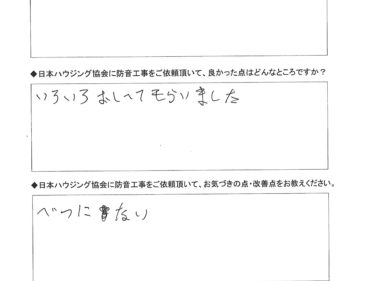 ◆日本ハウジング協会に防音工事をご依頼頂いて、良かった点はどんなところですか？
いろいろおしへてもらいました
◆日本ハウジング協会に防音工事をご依頼頂いて、お気づきの点・改善点をお教えください。
べつにない